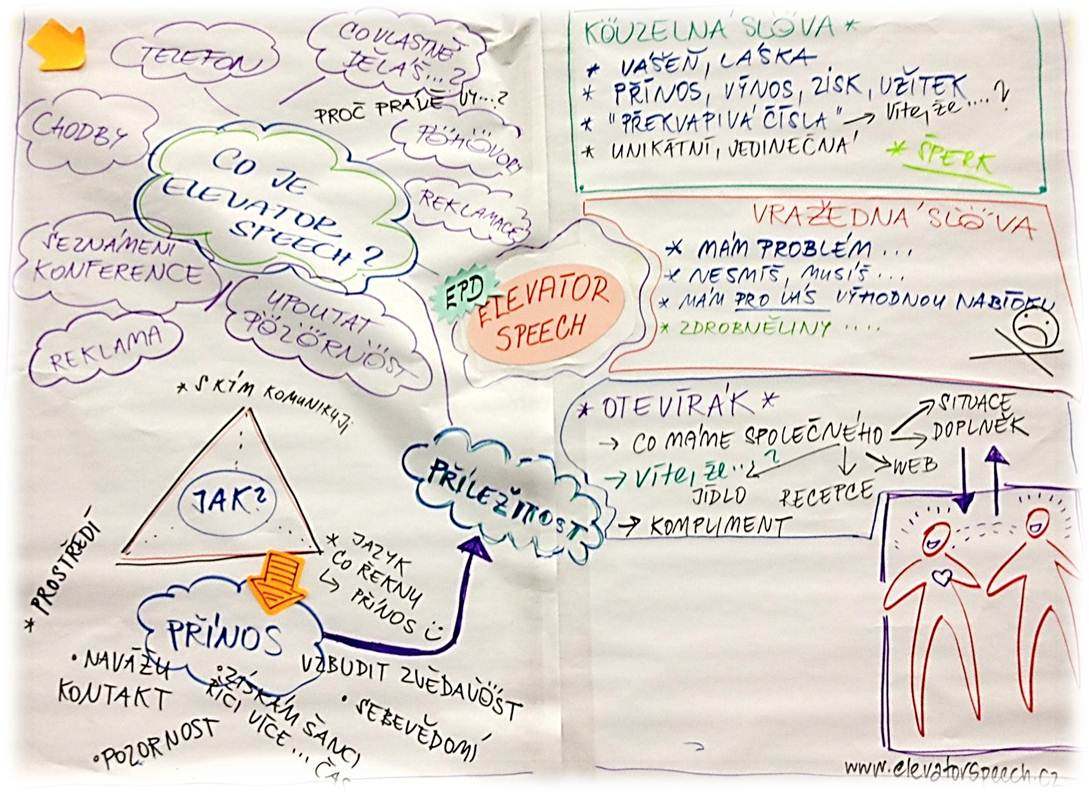 TELEFON
CO VLASTNĚ
DĚLÁŠ...?
PROČ PRÁVĚ VY...?
CHODBY
POHOVORY
CO JE
ELEVATOR
SPEECH?
REKLAMACE
SEZNÁMENÍ
KONFERENCE
UPOUTAT
POZORNOST
REKLAMA
EPD
ELEVATOR
SPEECH
KOUZELNÁ SLOVA *
* VÁŠEŇ, LÁSKA
* PŘÍNOS, VÝNOS, ZISK, UŽITEK
* "PŘEKVAPIVÁ ČÍSLA" → Víte, že ....?
* UNIKÁTNÍ, JEDINEČNÁ
* ŠPERK
VRAŽEDNÁ SLOVA
* MÁM PROBLÉM ...
* NESMÍŠ, MUSÍŠ...
* MÁM PRO VÁS VÝHODNOU NABÍDKU
* ZDROBNĚLINY ....
* OTEVÍRÁK *
→ CO MÁME SPOLEČNÉHO
→ SITUACE
→ DOPLNĚK
→ WEB
RECEPCE
JÍDLO
→ Víte, že...?
→ KOMPLIMENT
* S KÝM KOMUNIKUJI
JAK?
* PROSTŘEDÍ
* JAZYK
* CO ŘEKNU
↳ PŘÍNOS
PŘÍLEŽITOST
PŘÍNOS
• NAVÁŽU
KONTAKT
• POZORNOST
• ZÍSKÁM ŠANCI
ŘÍCI VÍCE... ČAS
VZBUDIT ZVĚDAVOST
• SEBEVĚDOMÍ
www.elevatorspeech.cz